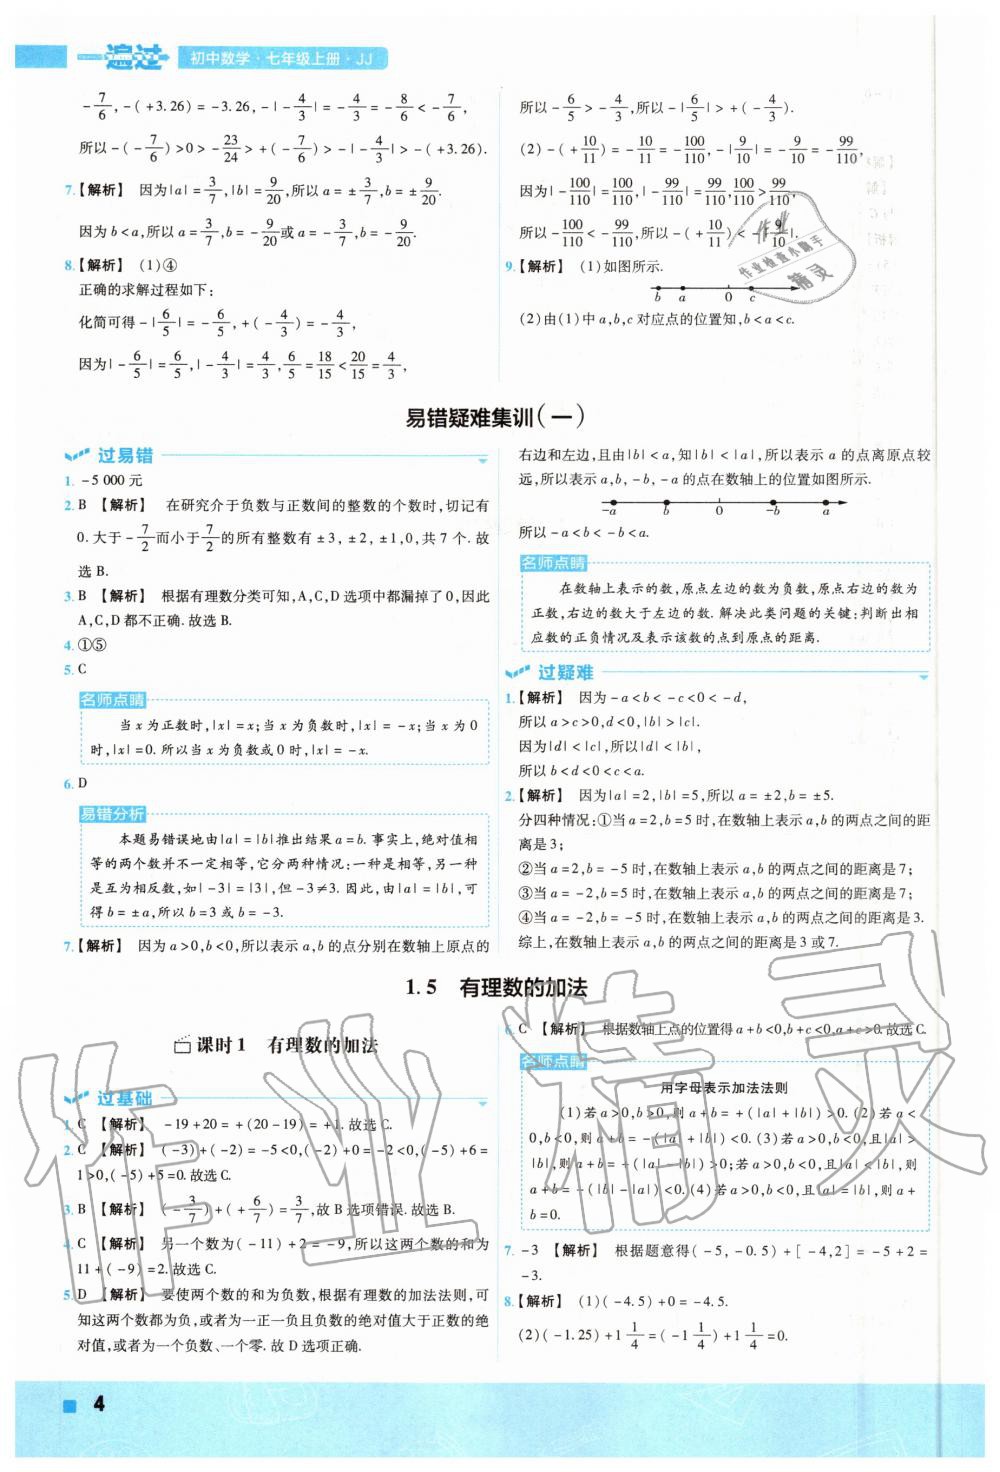 一遍过 初中数学·七年级上册·JJ
-7/6,-(+3.26)=-3.26,-|-4/3|=-4/3=-8/6<-7/6,
所以-(-7/6)>0>-23/24>+(-7/6)>-|-4/3|>-(+3.26).
7.【解析】 因为|a|=3/7,|b|=9/20,所以a=±3/7,b=±9/20.
因为b<a,所以a=3/7,b=-9/20或a=-3/7,b=-9/20.
8.【解析】 (1)④
正确的求解过程如下:
化简可得-|6/5|=-6/5,+(-4/3)=-4/3,
因为|-6/5|=6/5,|-4/3|=4/3,6/5=18/15<20/15=4/3,
所以-6/5>-4/3,所以-|6/5|>+(-4/3).
(2)-(+10/11)=-10/11=-100/110,-|9/10|=-9/10=-99/110,
因为|-100/110|=100/110,|-99/110|=99/110,100/110>99/110,
所以-100/110<-99/110,所以-(+10/11)<-|9/10|.
9.【解析】 (1)如图所示.
b a 0 c
(2)由(1)中a,b,c对应点的位置知,b<a<c.
易错疑难集训(一)
过易错
1. -5 000元
2. B 【解析】 在研究介于负数与正数间的整数的个数时,切记有
0.大于-7/2而小于7/2的所有整数有±3,±2,±1,0,共7个.故
选B.
3. B 【解析】 根据有理数分类可知,A,C,D选项中都漏掉了0,因此
A,C,D都不正确.故选B.
4. ①⑤
5. C
名师点睛
当x为正数时,|x|=x;当x为负数时,|x|=-x;当x为0
时,|x|=0.所以当x为负数或0时,|x|=-x.
6. D
易错分析
本题易错误地由|a|=|b|推出结果a=b.事实上,绝对值相
等的两个数并不一定相等,它分两种情况:一种是相等,另一种
是互为相反数,如|-3|=|3|,但-3≠3.因此,由|a|=|b|,可
得b=±a,所以b=3或b=-3.
7.【解析】 因为a>0,b<0,所以表示a,b的点分别在数轴上原点的
右边和左边,且由|b|<a,知|b|<|a|,所以表示a的点离原点较
远,所以表示a,b,-b,-a的点在数轴上的位置如图所示.
-a b 0 -b a
所以-a<b<-b<a.
名师点睛
在数轴上表示的数,原点左边的数为负数,原点右边的数为
正数,右边的数大于左边的数.解决此类问题的关键:判断出相
应数的正负情况及表示该数的点到原点的距离.
过疑难
1.【解析】 因为-a<b<-c<0<-d,
所以a>c>0,d<0,|b|>|c|.
因为|d|<|c|,所以|d|<|b|,
所以b<d<0<c<a.
2.【解析】 因为|a|=2,|b|=5,所以a=±2,b=±5.
分四种情况:①当a=2,b=5时,在数轴上表示a,b的两点之间的距
离是3;
②当a=2,b=-5时,在数轴上表示a,b的两点之间的距离是7;
③当a=-2,b=5时,在数轴上表示a,b的两点之间的距离是7;
④当a=-2,b=-5时,在数轴上表示a,b的两点之间的距离是3.
综上,在数轴上表示a,b的两点之间的距离是3或7.
1.5 有理数的加法
课时1 有理数的加法
过基础
1. C 【解析】 -19+20=+(20-19)=+1.故选C.
2. C 【解析】 (-3)+(-2)=-5<0,(-2)+0=-2<0,(-5)+6=
1>0,(-5)+5=0.故选C.
3. B 【解析】 (-3/7)+(+6/7)=3/7,故B选项错误.故选B.
4. C 【解析】 另一个数为(-11)+2=-9,所以这两个数的和为
11+(-9)=2.故选C.
5. D 【解析】 要使两个数的和为负数,根据有理数的加法法则,可
知这两个数都为负,或者为一正一负且负数的绝对值大于正数的绝
对值,或者为一个负数、一个零.故D选项正确.
6. C 【解析】 根据数轴上点的位置得a+b<0,b+c<0,a+c>0.故选C.
名师点睛
用字母表示加法法则
(1)若a>0,b>0,则a+b=+(|a|+|b|)>0.(2)若a<
0,b<0,则a+b=-(|a|+|b|)<0.(3)若a>0,b<0,且|a|>
|b|,则a+b=+(|a|-|b|)>0;若a>0,b<0,且|a|<|b|,则
a+b=-(|b|-|a|)<0.(4)若a>0,b<0,且|a|=|b|,则a+
b=0.
7. -3 【解析】 根据题意得(-5,-0.5)+[-4,2]=-5+2=
-3.
8.【解析】 (1)(-4.5)+0=-4.5.
(2)(-1.25)+1 1/4=(-1 1/4)+1 1/4=0.
4
作业
作业检查小助手
精灵
作业精灵